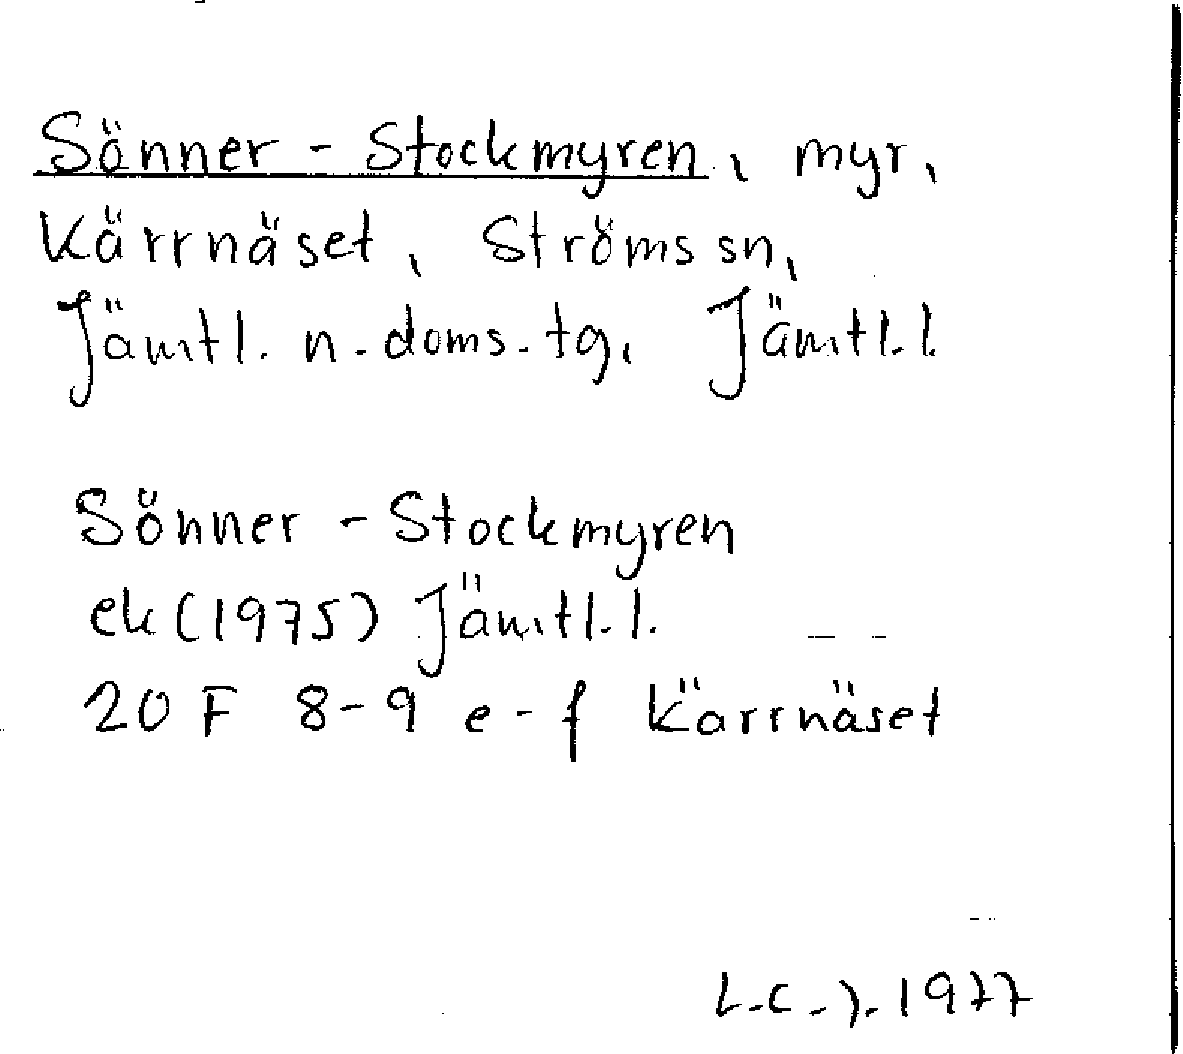 Sönner - Stockmyren, myr,
Kärrnäset, Ströms sn,
Jämtl. n. doms. tg, Jämtl. l.
Sönner - Stockmyren
ek (1975) Jämtl. l.
20 F 8-9 e-f Kärrnäset
1977